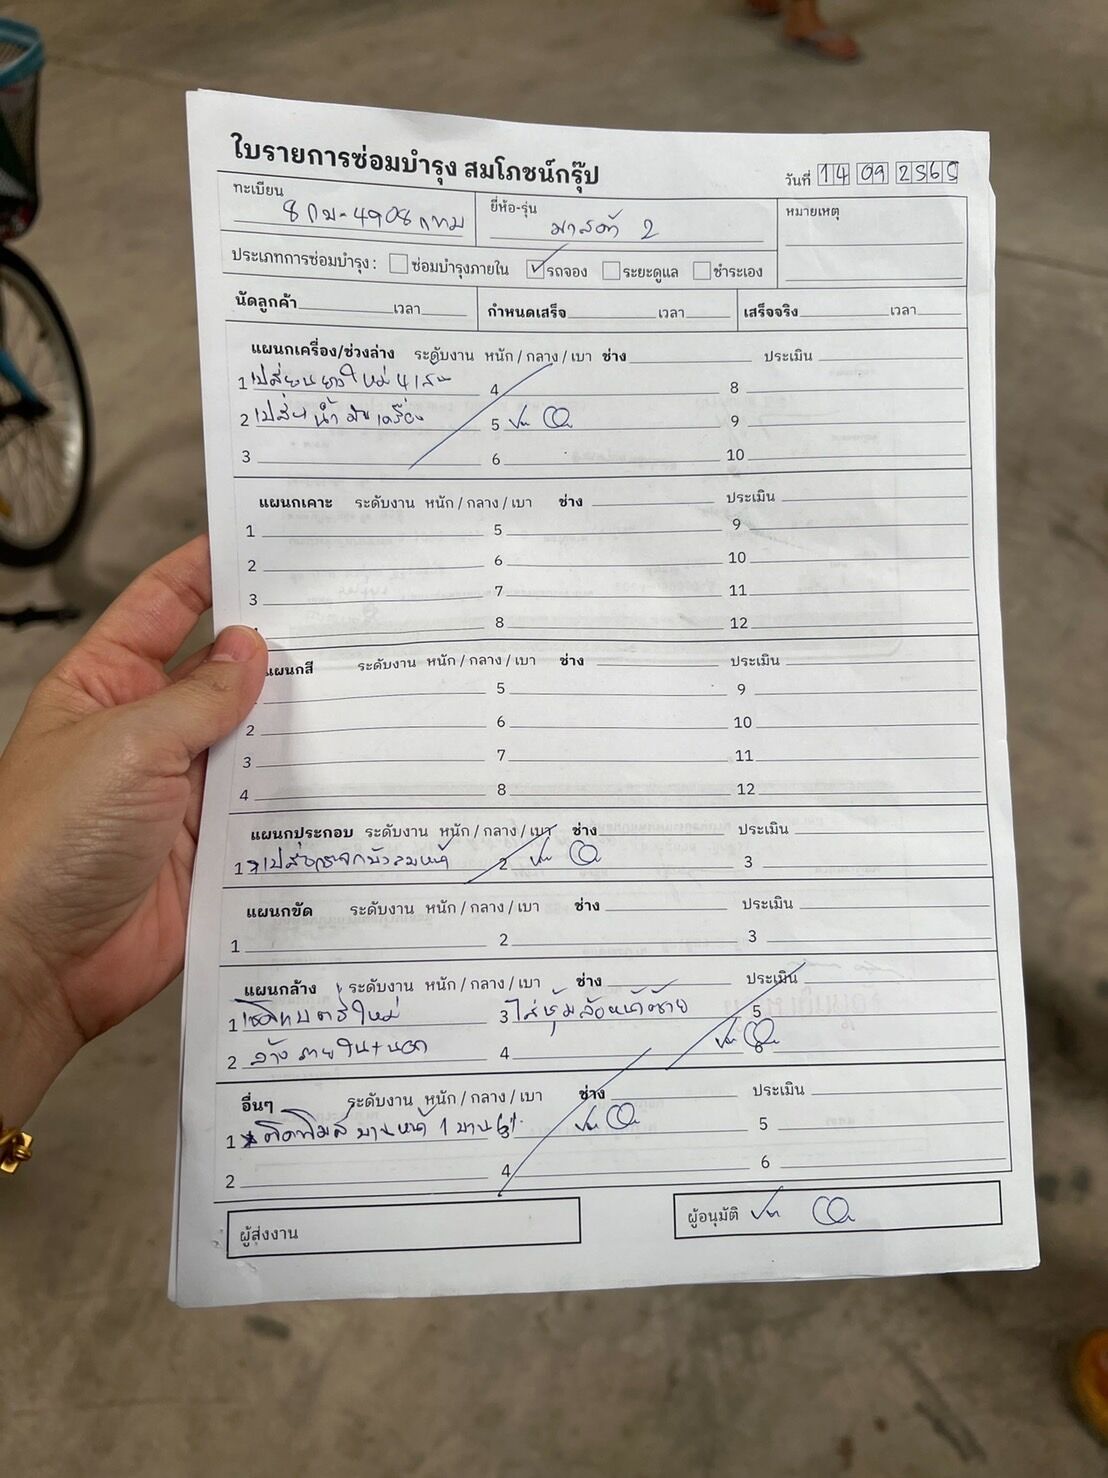 ใบรายการซ่อมบำรุง สมโภชน์กรุ๊ป
วันที่ 14 09 2565
ทะเบียน 8กบ-4908 กทม
ยี่ห้อ-รุ่น มาสด้า 2
หมายเหตุ
ประเภทการซ่อมบำรุง : ซ่อมบำรุงภายใน รถจอง ระยะดูแล ชำระเอง
นัดลูกค้า เวลา กำหนดเสร็จ เวลา เสร็จจริง เวลา
แผนกเครื่อง/ช่วงล่าง ระดับงาน หนัก / กลาง / เบา ช่าง ประเมิน
1 เปลี่ยนยางใหม่ 4 เส้น 4 8
2 เปลี่ยนน้ำมันเครื่อง 5 9
3 6 10
แผนกเคาะ ระดับงาน หนัก / กลาง / เบา ช่าง ประเมิน
1 5 9
2 6 10
3 7 11
8 12
แผนกสี ระดับงาน หนัก / กลาง / เบา ช่าง ประเมิน
5 9
2 6 10
3 7 11
4 8 12
แผนกประกอบ ระดับงาน หนัก / กลาง / เบา ช่าง ประเมิน
1 2 3
แผนกขัด ระดับงาน หนัก / กลาง / เบา ช่าง ประเมิน
1 2 3
แผนกล้าง ระดับงาน หนัก / กลาง / เบา ช่าง ประเมิน
1 เช็คแบตรี่ใหม่ 3 ใส่ซุ้มล้อหน้าซ้าย 5
2 ล้างภายใน+นอก 4 6
อื่นๆ ระดับงาน หนัก / กลาง / เบา ช่าง ประเมิน
1 ติดฟิมส์บานหน้า 1 บาน 3 5
2 4 6
ผู้ส่งงาน
ผู้อนุมัติ